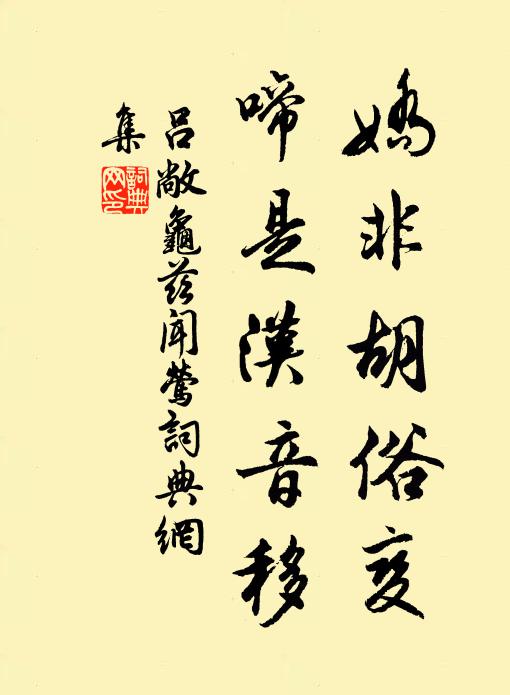 嬌非胡俗变
啼是漢音移
呂敞龜茲闻鶯詞典網
集
詞典
网印